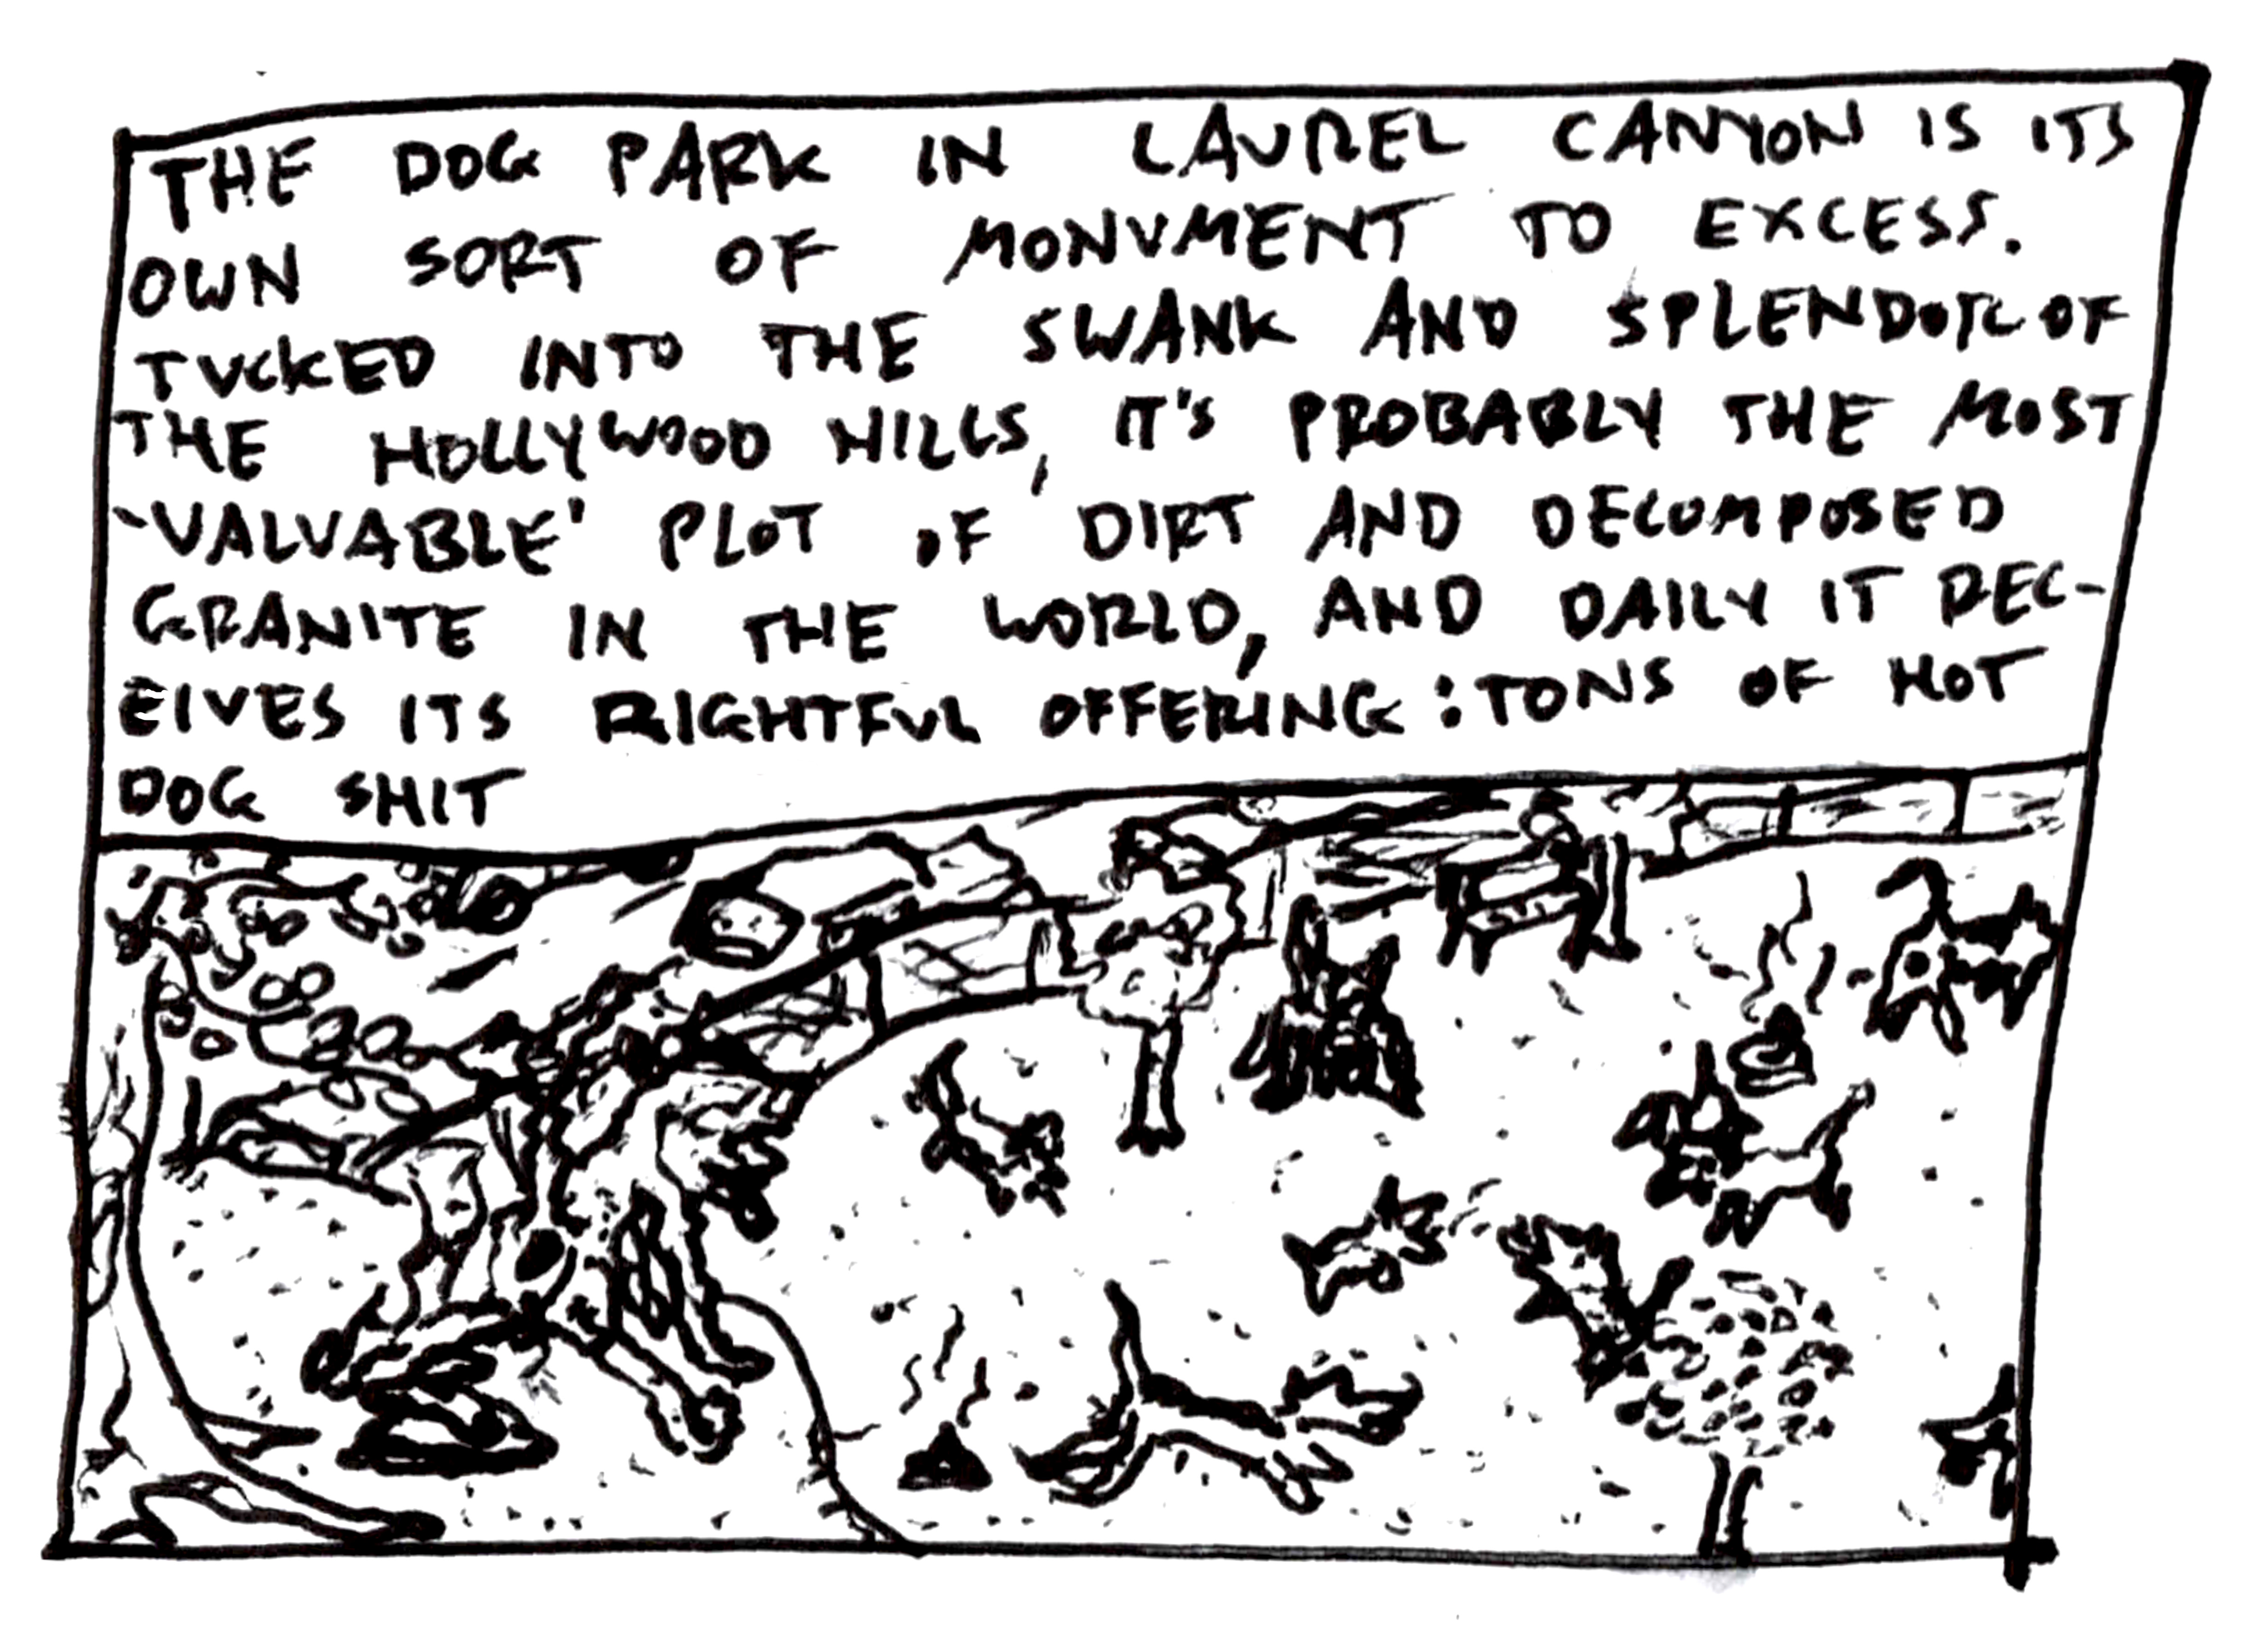 THE DOG PARK IN LAUREL CANYON IS ITS
OWN SORT OF MONUMENT TO EXCESS.
TUCKED INTO THE SWANK AND SPLENDOR OF
THE HOLLYWOOD HILLS, IT'S PROBABLY THE MOST
'VALUABLE' PLOT OF DIRT AND DECOMPOSED
GRANITE IN THE WORLD, AND DAILY IT REC-
EIVES ITS RIGHTFUL OFFERING: TONS OF HOT
DOG SHIT